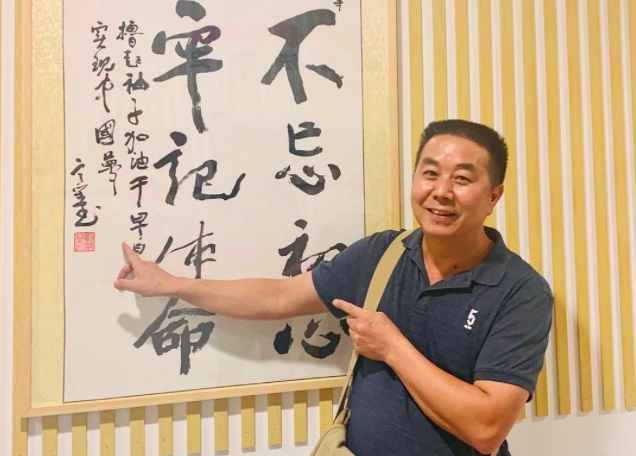 不忘初心
牢记使命
撸起袖子加油干早日
实现中國夢
5